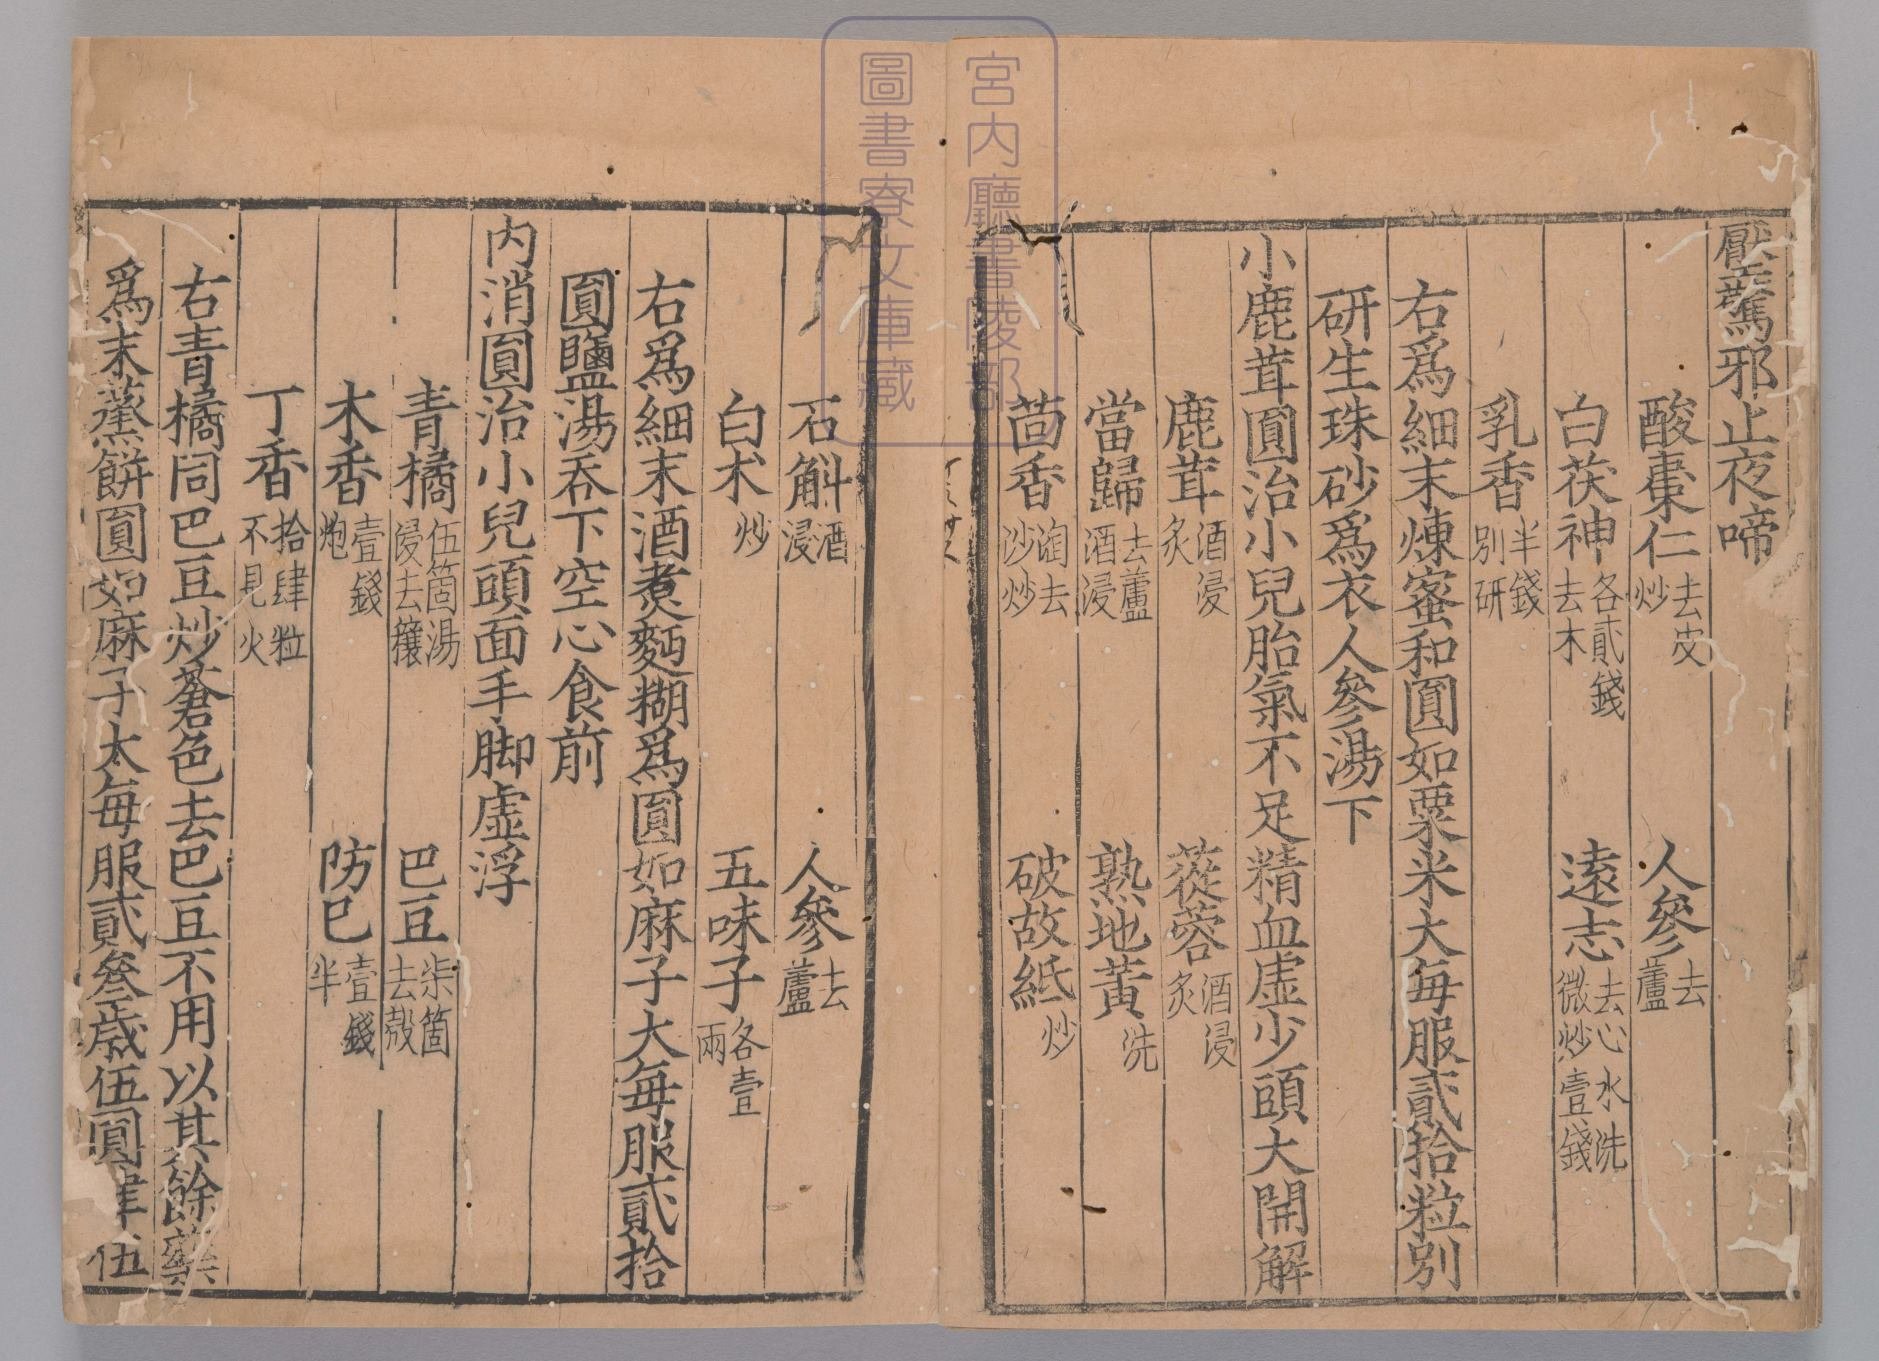 厭驚邪止夜啼
酸棗仁去皮炒 人參去蘆
白茯神各貳錢去木 遠志去心水洗微炒壹錢
乳香半錢別研
右爲細末煉蜜和圓如粟米大每服貳拾粒別
研生珠砂爲衣人參湯下
小鹿茸圓治小兒胎氣不足精血虛少頭大開解
鹿茸酒浸炙 蓯蓉酒浸炙
當歸去蘆酒浸 熟地黃洗
茴香淘去沙炒 破故紙炒
石斛酒浸 人參去蘆
白朮炒 五味子各壹兩
右爲細末酒煮麪糊爲圓如麻子大每服貳拾
圓鹽湯吞下空心食前
內消圓治小兒頭面手脚虛浮
青橘伍箇湯浸去穰 巴豆柒箇去殼
木香壹錢炮 防巳壹錢半
丁香拾肆粒不見火
右青橘同巴豆炒蒼色去巴豆不用以其餘藥
爲末蒸餅圓如麻子大每服貳叁歲伍圓肆伍
宮内廳書陵部
圖書寮文庫藏